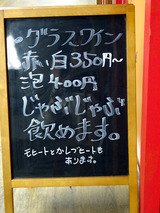 グラスワイン
赤い白350円〜
泡400円
じゃぶじゃぶ
飲めます。
モヒートとかしプヒートも
あります。